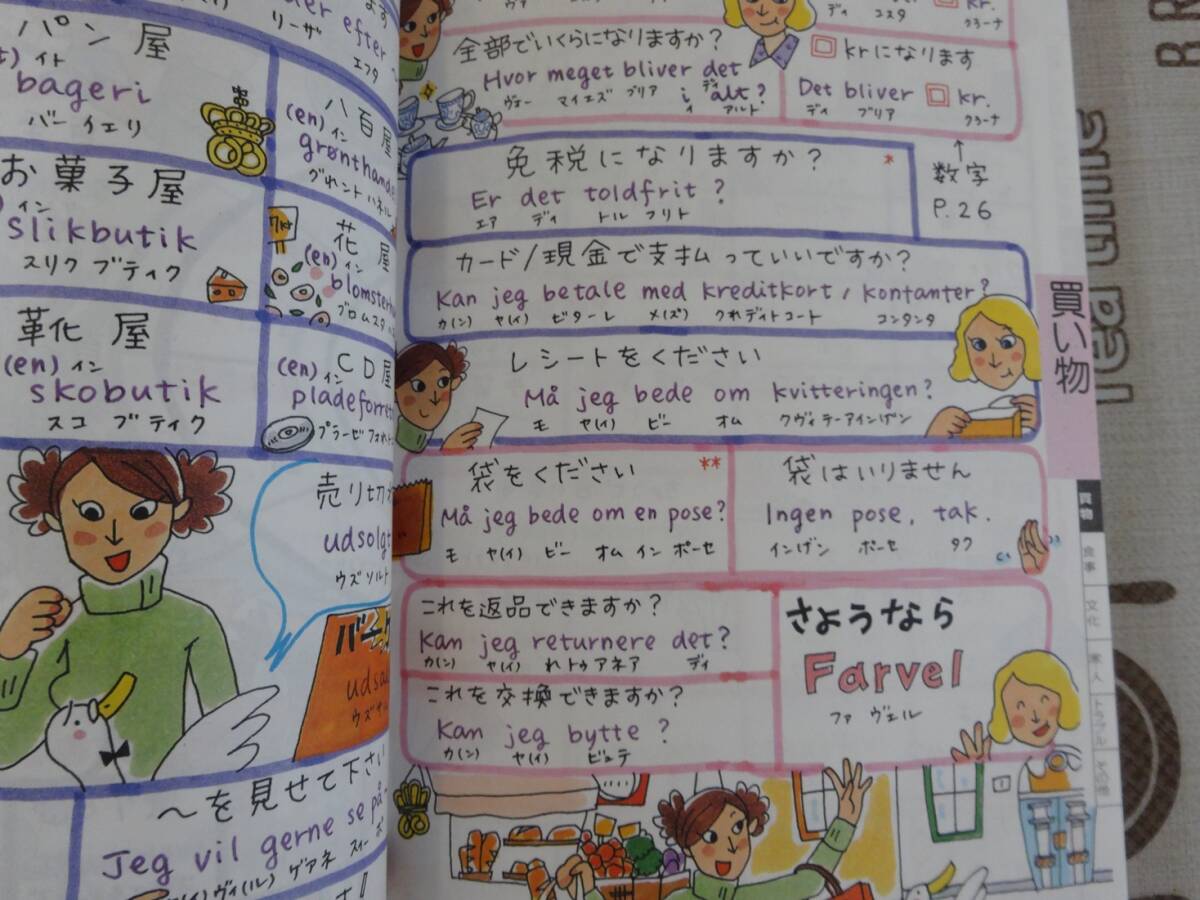 パン屋
bageri
バー イェリ
八百屋
(en) イン
お菓子屋
イン
slikbutik
スリク ブティク
花屋
(en) イン
ブロムスタ
靴屋
(en) イン
skobutik
スコ ブティク
CD屋
(en) イン
売り切
udsolgt
ウズ ソルト
〜を見せて下さい
Jeg vil gerne se på
全部でいくらになりますか?
Hvor meget bliver det
i alt?
ヴォー マイエズ ブリア ディ
イ アルト
krになります
Det bliver kr.
ディ ブリア クローナ
↑
数字
P.26
免税になりますか? *
Er det toldfrit?
エア ディ トル フリト
カード/現金で支払っていいですか?
Kan jeg betale med kreditkort, kontanter?
カ(ン) ヤ(イ) ビターレ メ(ズ) クれディトコート コンタンタ
レシートをください
Må jeg bede om kvitteringen?
モ ヤ(イ) ビー オム クヴィテーアインげン
袋をください **
Må jeg bede om en pose?
モ ヤ(イ) ビー オム イン ポーセ
袋はいりません
Ingen pose, tak.
インげン ポーセ タク
これを返品できますか?
Kan jeg returnere det?
カ(ン) ヤ(イ) れトゥアネア ディ
これを交換できますか?
Kan jeg bytte?
カ(ン) ヤ(イ) ビュテ
さようなら
Farvel
ファ ヴェル
買い物
買物
食事
文化
家人
トラブル
その他
Tea time